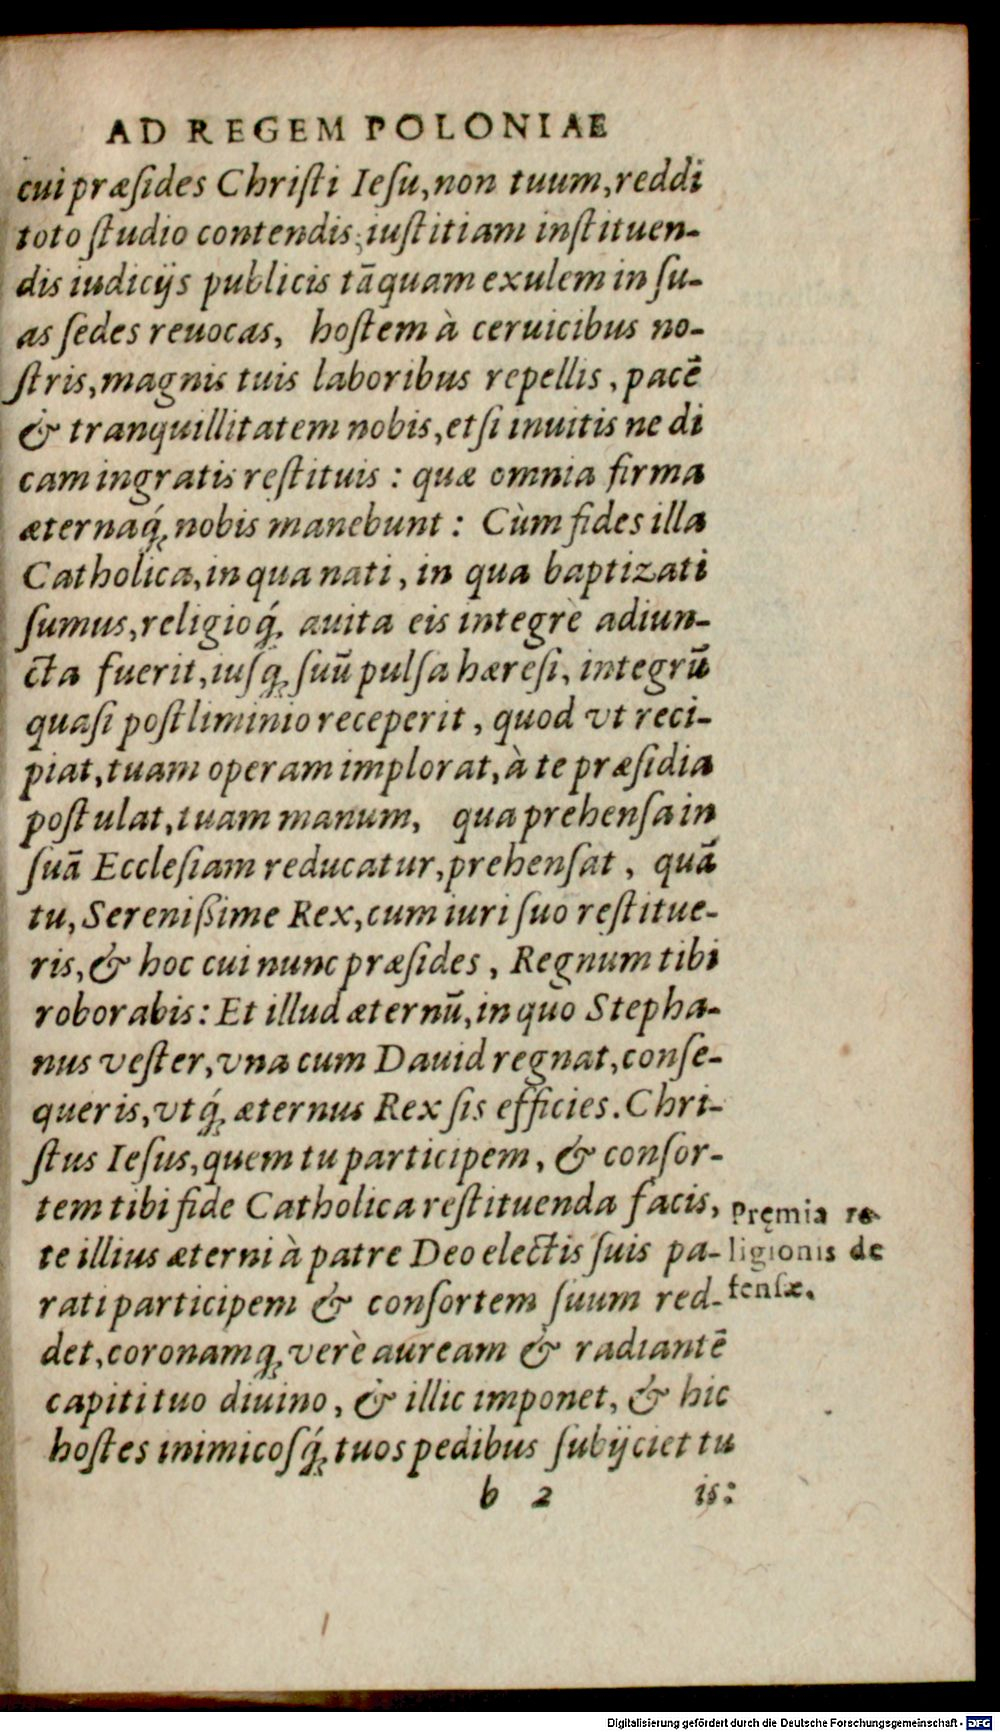 AD REGEM POLONIAE
cui præſides Chriſti Ieſu, non tuum, reddi
toto ſtudio contendis, iuſtitiam inſtituen-
dis iudicijs publicis tãquam exulem in ſu-
as ſedes reuocas, hoſtem à ceruicibus no-
ſtris, magnis tuis laboribus repellis, pacẽ
& tranquillitatem nobis, etſi inuitis ne di
cam ingratis reſtituis: quæ omnia firma
æternaq́; nobis manebunt: Cùm fides illa
Catholica, in qua nati, in qua baptizati
ſumus, religioq́; auita eis integrè adiun-
cta fuerit, iuſq́; ſuũ pulſa hæreſi, integrũ
quaſi poſtliminio receperit, quod vt reci-
piat, tuam operam implorat, à te præſidia
poſtulat, tuam manum, qua prehenſa in
ſuã Eccleſiam reducatur, prehenſat, quã
tu, Sereniſſime Rex, cum iuri ſuo reſtitue-
ris, & hoc cui nunc præſides, Regnum tibi
roborabis: Et illud æternũ, in quo Stepha-
nus veſter, vna cum Dauid regnat, conſe-
queris, vtq́; æternus Rex ſis efficies. Chri-
ſtus Ieſus, quem tu participem, & conſor-
tem tibi fide Catholica reſtituenda facis,
te illius æterni à patre Deo electis ſuis pa-
rati participem & conſortem ſuum red-
det, coronamq́; verè auream & radiantẽ
capiti tuo diuino, & illic imponet, & hic
hoſtes inimicoſq́; tuos pedibus ſubijciet tu
b 2 is:
Pręmia re
ligionis de
fenſæ.
Digitalisierung gefördert durch die Deutsche Forschungsgemeinschaft - DFG